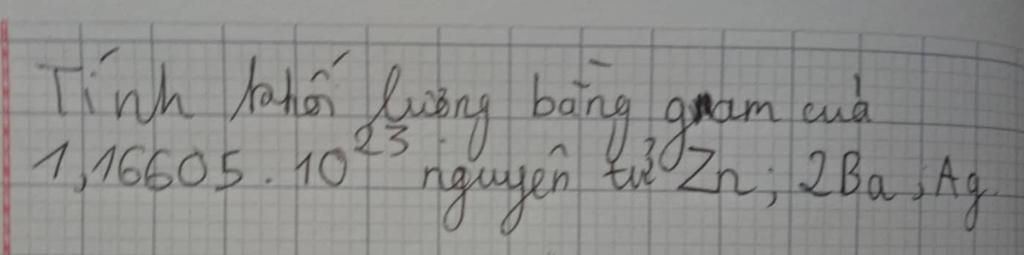 Tính khối lượng bằng gram của
1,16605.10²³ nguyên tử Zn; 2Ba; Ag